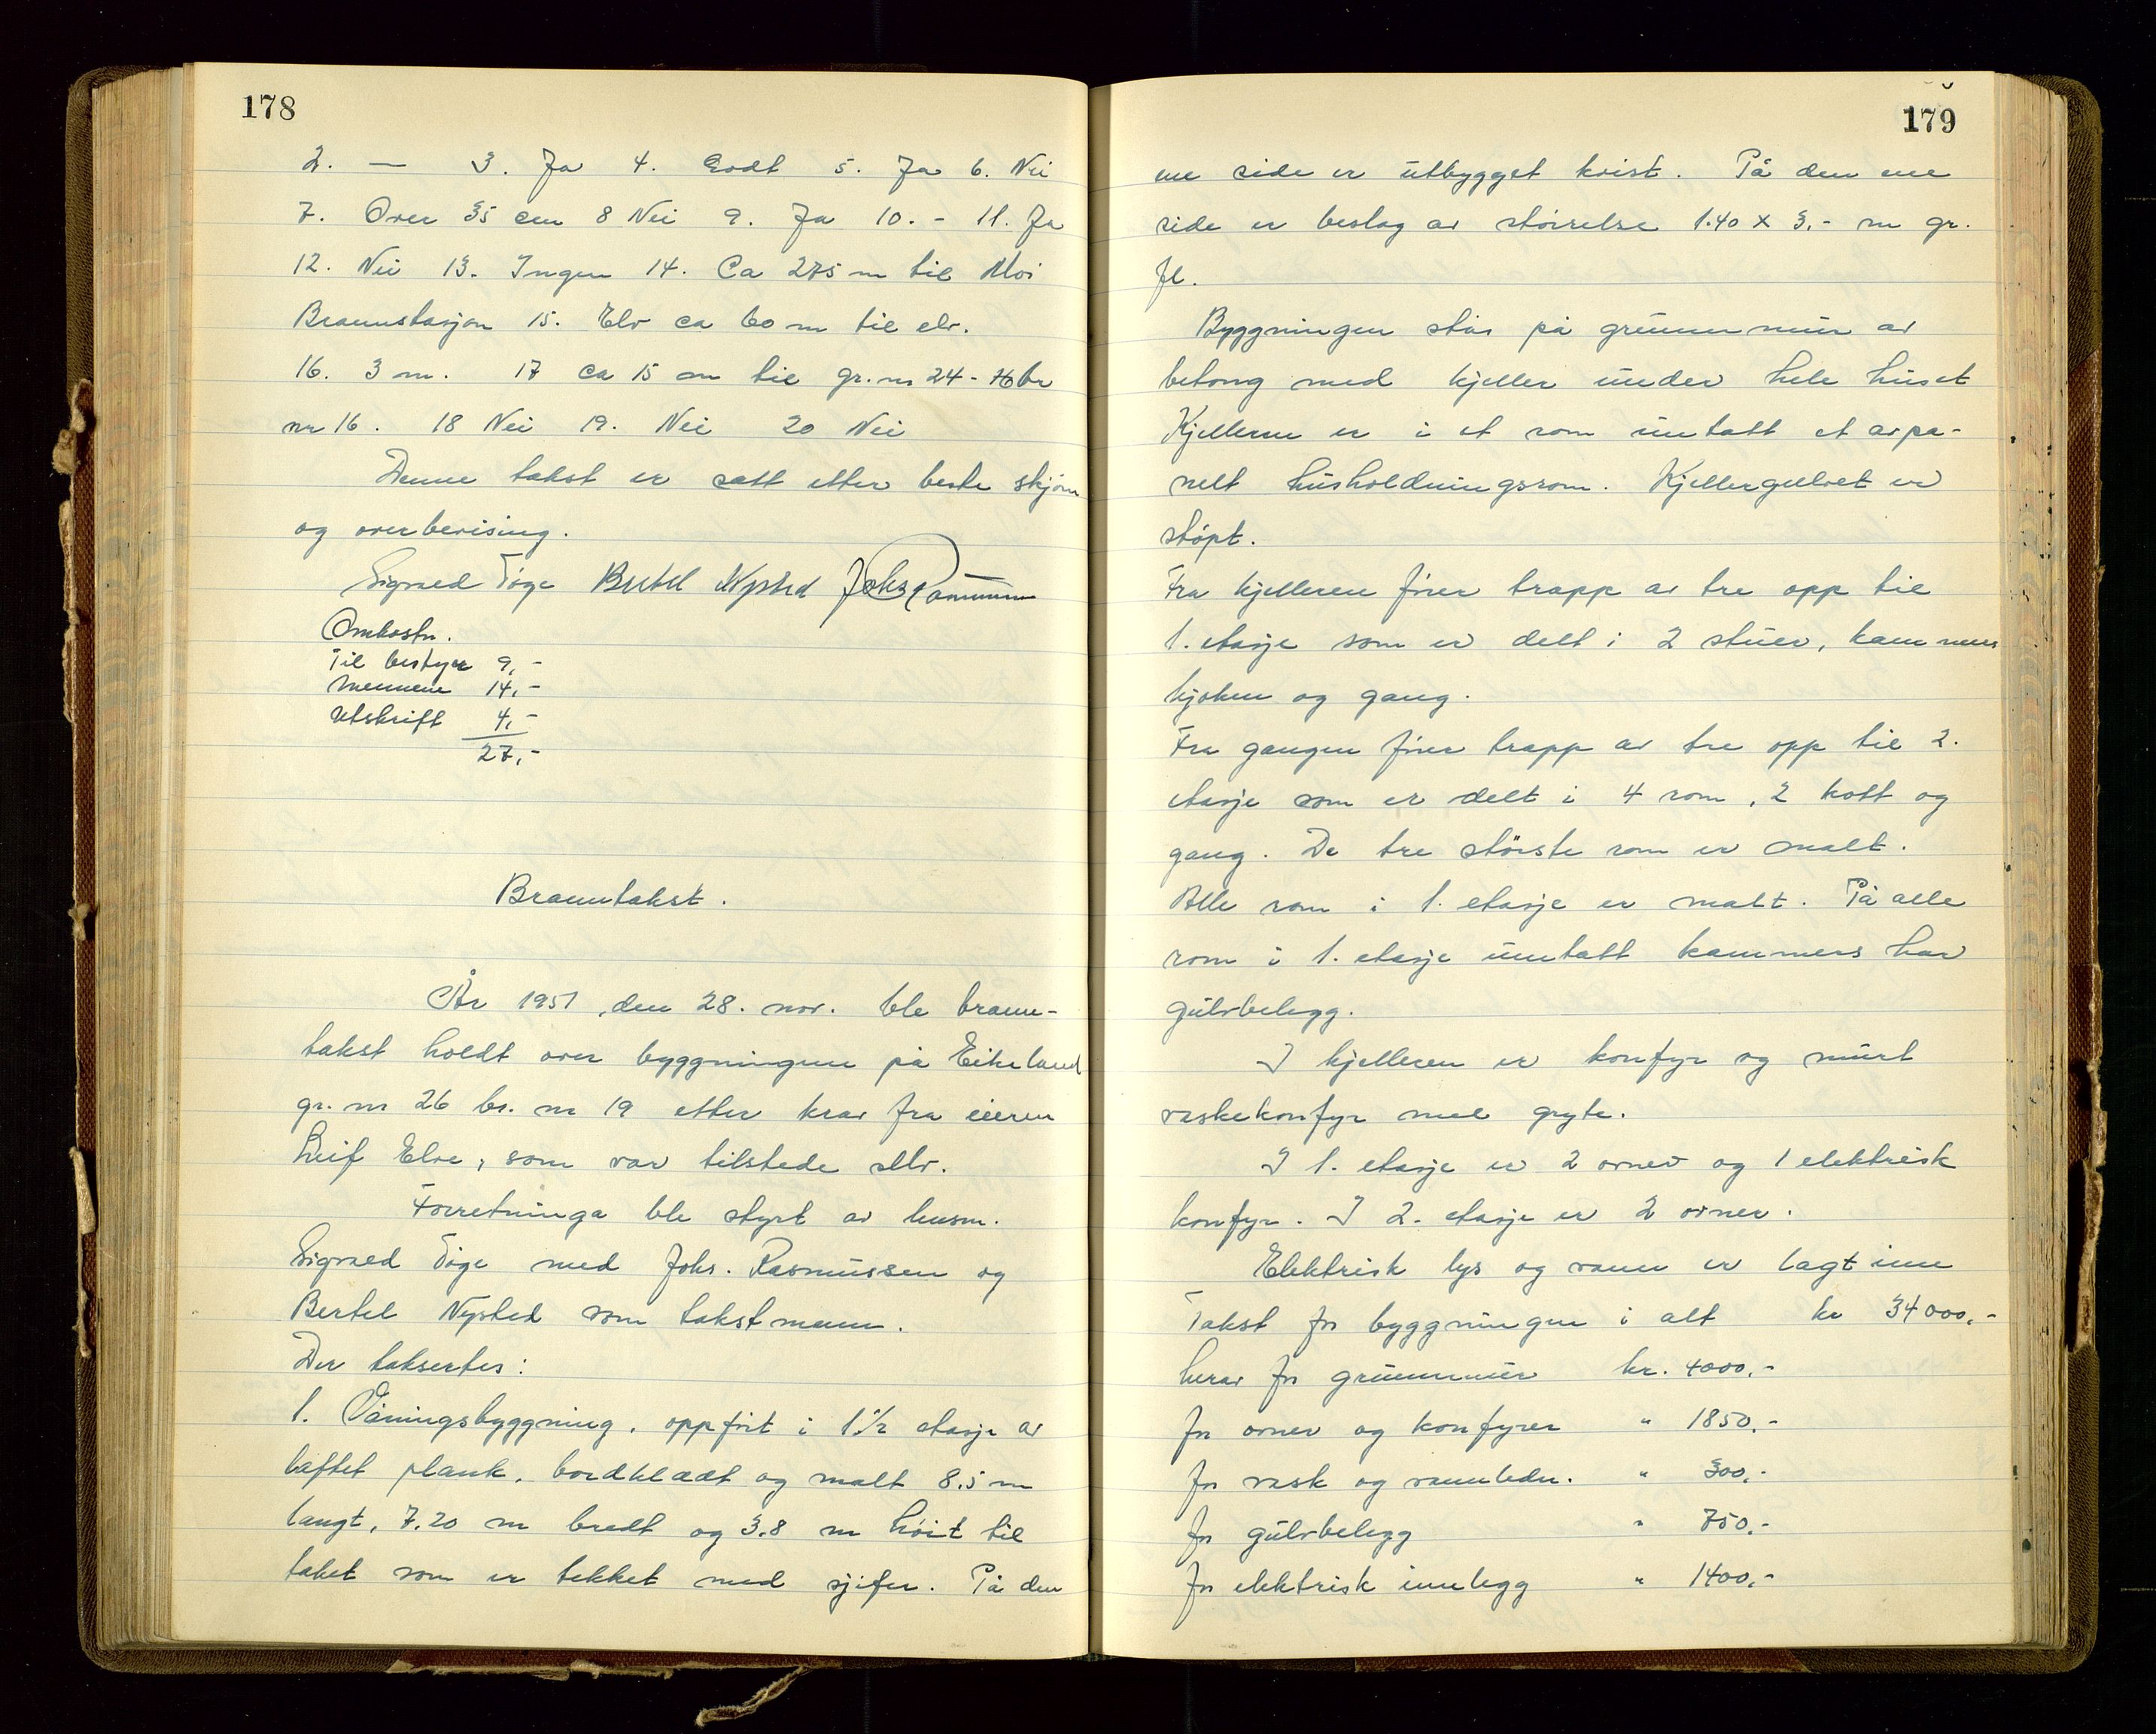 178
2. — 3. Ja 4. Godt 5. Ja 6. Nei
7. Over 35 cm 8 Nei 9. Ja 10. - 11. Ja
12. Nei 13. Ingen 14. Ca 275 m til Moi
Brannstasjon 15. Elv ca 60 m til elv.
16. 3 m. 17 ca 15 m til gr. nr 24 - br
nr 16. 18 Nei 19. Nei 20 Nei
Denne takst er satt etter beste skjøn
og overbevising.
Sigvald Tøge Bertel Nysted Johs Rasmussen
Omkostn.
Til bestyr 9,-
Mennene 14,-
Utskrift 4,-
27,-
Branntakst.
År 1951, den 28. nov. ble brann-
takst holdt over byggningene på Eikeland
gr. nr 26 br. nr 19 etter krav fra eieren
Leif Elve, som var tilstede selv.
Forretninga ble styrt av lensm.
Sigvald Tøge med Johs. Rasmussen og
Bertel Nysted som takstmenn.
Der taksertes:
1. Våningsbyggning, oppført i 1½ etasje av
laftet plank, bordklædt og malt 8.5 m
langt, 7.20 m bredt og 3.8 m høit til
taket som er tekket med sjifer. På den
179
ene side er utbygget kvist. På den ene
side er beslag av størrelse 1.40 x 3,- m gr.
fl.
Byggningen står på grunnmur av
betong med kjeller under hele huset
Kjelleren er i et rom untatt et avpa-
nelt husholdningsrom. Kjellergulvet er
støpt.
Fra kjelleren fører trapp av tre opp til
1. etasje som er delt i 2 stuer, kammers
kjøken og gang.
Fra gangen fører trapp av tre opp til 2.
etasje som er delt i 4 rom, 2 kott og
gang. De tre største rom er malt.
Alle rom i 1. etasje er malt. På alle
rom i 1. etasje untatt kammers har
gulvbelegg.
I kjelleren er konfyr og murt
vaskekonfyr med gryte.
I 1. etasje er 2 ovner og 1 elektrisk
konfyr. I 2. etasje er 2 ovner.
Elektrisk lys og vann er lagt inn
Takst for byggningen i alt kr 34000,-
herav for grunnmur kr. 4000,-
for ovner og konfyrer " 1850,-
for vask og vannledn. " 300,-
for gulvbelegg " 750,-
for elektrisk innlegg " 1400,-